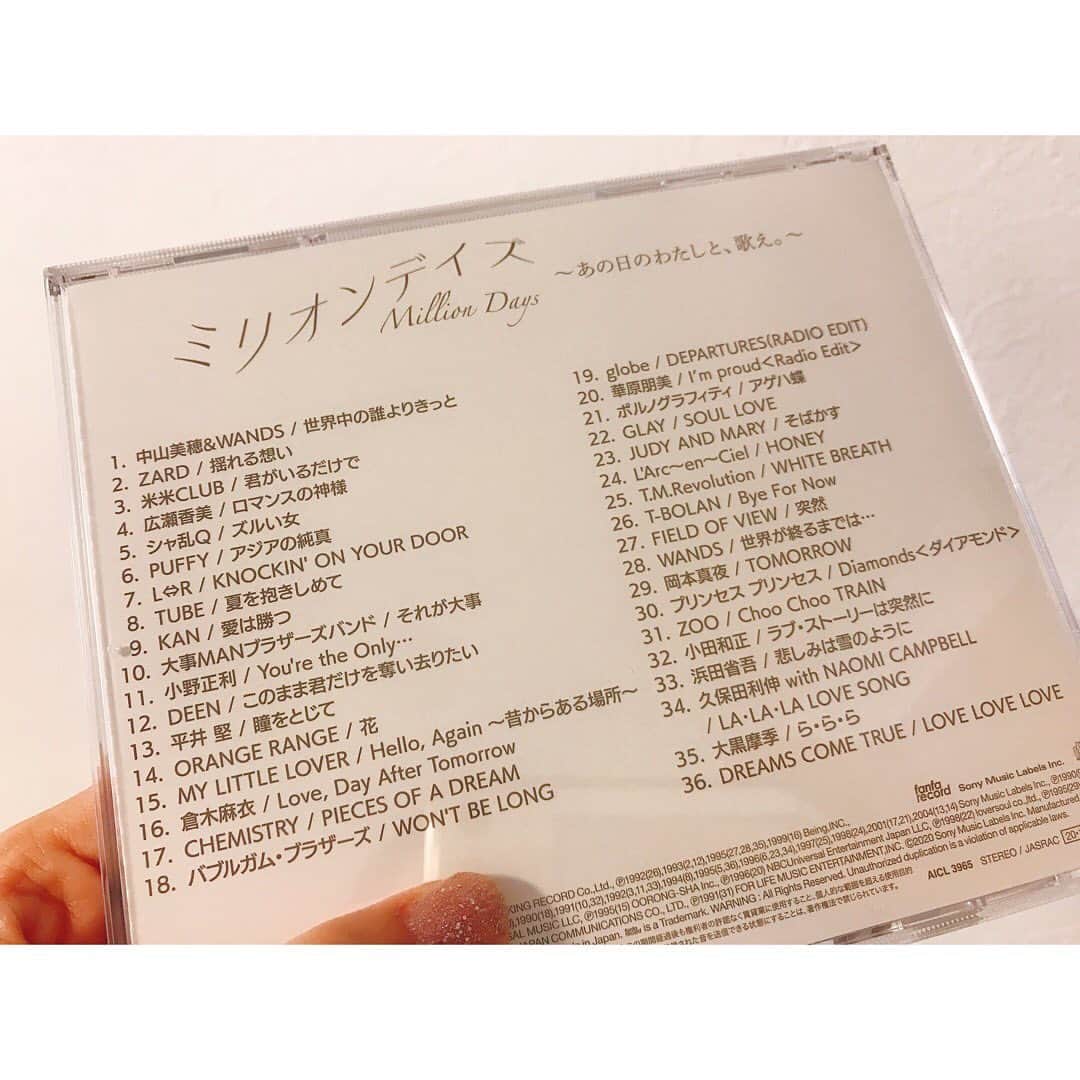 ミリオンデイズ
Million Days
～あの日のわたしと、歌え。～
1. 中山美穂&WANDS / 世界中の誰よりきっと
2. ZARD / 揺れる想い
3. 米米CLUB / 君がいるだけで
4. 広瀬香美 / ロマンスの神様
5. シャ乱Q / ズルい女
6. PUFFY / アジアの純真
7. L⇔R / KNOCKIN' ON YOUR DOOR
8. TUBE / 夏を抱きしめて
9. KAN / 愛は勝つ
10. 大事MANブラザーズバンド / それが大事
11. 小野正利 / You're the Only…
12. DEEN / このまま君だけを奪い去りたい
13. 平井 堅 / 瞳をとじて
14. ORANGE RANGE / 花
15. MY LITTLE LOVER / Hello, Again ～昔からある場所～
16. 倉木麻衣 / Love, Day After Tomorrow
17. CHEMISTRY / PIECES OF A DREAM
18. バブルガム・ブラザーズ / WON'T BE LONG
19. globe / DEPARTURES(RADIO EDIT)
20. 華原朋美 / I'm proud<Radio Edit>
21. ポルノグラフィティ / アゲハ蝶
22. GLAY / SOUL LOVE
23. JUDY AND MARY / そばかす
24. L'Arc～en～Ciel / HONEY
25. T.M.Revolution / WHITE BREATH
26. T-BOLAN / Bye For Now
27. FIELD OF VIEW / 突然
28. WANDS / 世界が終るまでは…
29. 岡本真夜 / TOMORROW
30. プリンセス プリンセス / Diamonds<ダイアモンド>
31. ZOO / Choo Choo TRAIN
32. 小田和正 / ラブ・ストーリーは突然に
33. 浜田省吾 / 悲しみは雪のように
34. 久保田利伸 with NAOMI CAMPBELL
/ LA・LA・LA LOVE SONG
35. 大黒摩季 / ら・ら・ら
36. DREAMS COME TRUE / LOVE LOVE LOVE
fanfa record Sony Music Labels Inc.
KING RECORD Co.,Ltd., ℗1992(26),1993(2,12),1995(27,28,35),1999(16) Being,INC.,
NBCUniversal Entertainment Japan LLC, ℗1998(22) loversoul co.,ltd.,
℗1995(15) OORONG-SHA Inc., ℗1996(20)
JAPAN COMMUNICATIONS CO., LTD., ℗1991(31) FOR LIFE MUSIC ENTERTAINMENT,INC. ©2020 Sony Music Labels Inc. Manufactured
in Japan. is a Trademark. WARNING : All Rights Reserved. Unauthorized duplication is a violation of applicable laws.
AICL 3965 STEREO / JASRAC